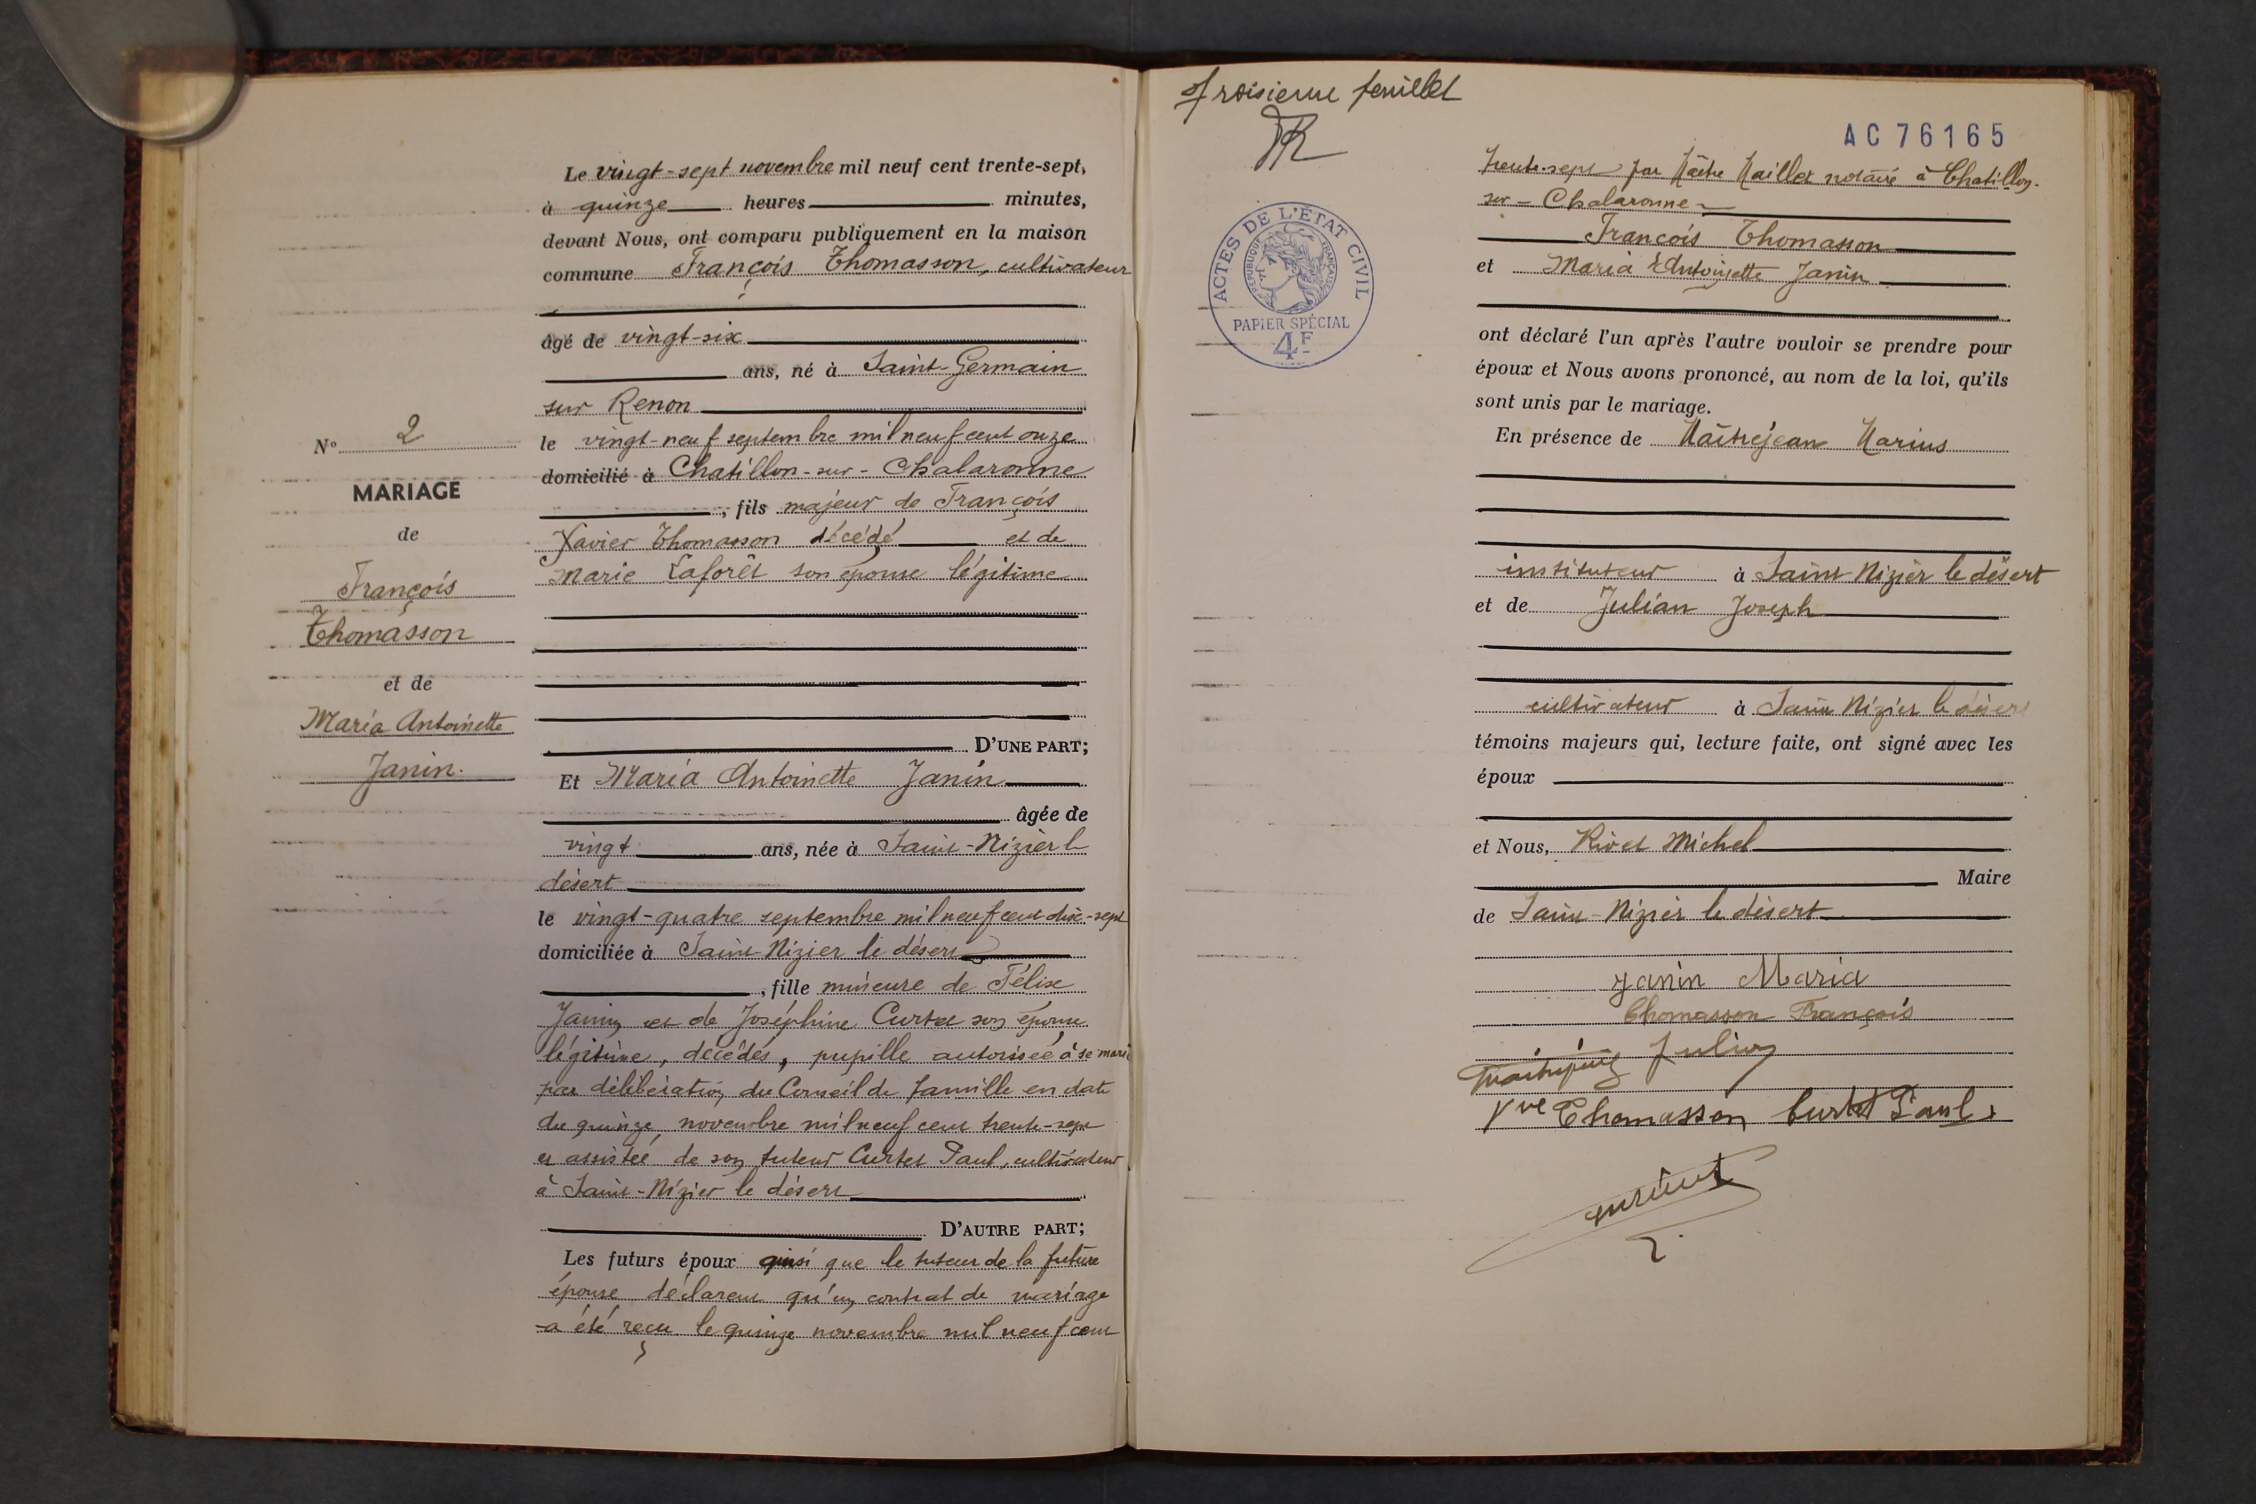 N° 2
MARIAGE
de
François
Thomasson
et de
Maria Antoinette
Janin.
Le vingt-sept novembre mil neuf cent trente-sept,
à quinze heures minutes,
devant Nous, ont comparu publiquement en la maison
commune François Thomasson, cultivateur
âgé de vingt-six
ans, né à Saint-Germain
sur Renon
le vingt-neuf septembre mil neuf cent onze
domicilié à Chatillon-sur-Chalaronne
, fils majeur de François
Xavier Thomasson décédé et de
Marie Laforêt son épouse légitime
D'UNE PART;
Et Maria Antoinette Janin
âgée de
vingt ans, née à Saint-Nizier le
désert
le vingt-quatre septembre mil neuf cent dix-sept
domiciliée à Saint-Nizier le désert
, fille mineure de Félix
Janin et de Joséphine Curtet son épouse
légitime, décédés, pupille autorisée à se marier
par délibération du Conseil de famille en date
du quinze novembre mil neuf cent trente-sept
et assistée de son tuteur Curtet Paul, cultivateur
à Saint-Nizier le désert
D'AUTRE PART;
Les futurs époux ainsi que le tuteur de la future
épouse déclarent qu'un contrat de mariage
a été reçu le quinze novembre mil neuf cent
troisième feuillet
AC 76165
ACTES DE L'ÉTAT CIVIL
RÉPUBLIQUE FRANÇAISE
PAPIER SPÉCIAL
4F
trente-sept par Maître Maillet notaire à Chatillon-
sur-Chalaronne
François Thomasson
et Maria Antoinette Janin
ont déclaré l'un après l'autre vouloir se prendre pour
époux et Nous avons prononcé, au nom de la loi, qu'ils
sont unis par le mariage.
En présence de Maîtrejean Marius
instituteur à Saint Nizier le désert
et de Julian Joseph
cultivateur à Saint Nizier le désert
témoins majeurs qui, lecture faite, ont signé avec les
époux
et Nous, Rivet Michel
Maire
de Saint-Nizier le désert
Janin Maria
Thomasson François
Maîtrejean Julian
Vve Thomasson Curtet Paul